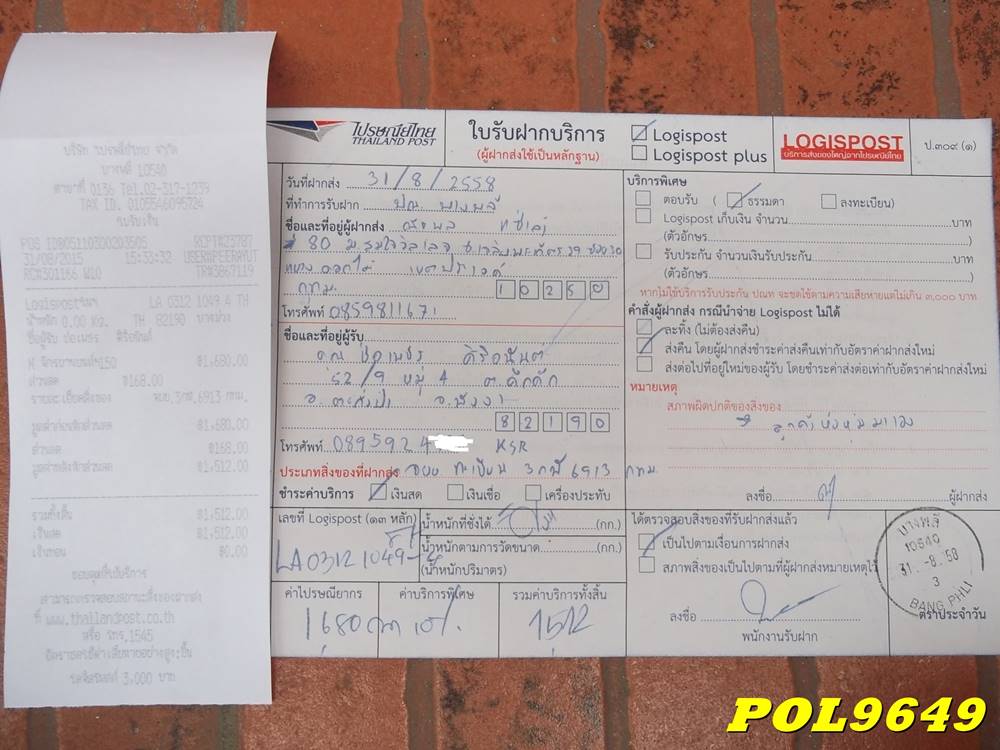 บริษัท ไปรษณีย์ไทย จำกัด
บางพลี 10540
สาขาที่ 0136 Tel.02-317-1239
TAX ID. 0105546095724
ใบรับเงิน
RCPT#23787
31/08/2015 15:33:32
RC#301166 W10 TR#3867119
Logispostธรรมดา LA 0312 1049 4 TH
น้ำหนัก 0.00 Kg. TH 82190
฿1,680.00
ส่วนลด ฿168.00
฿1,680.00
ส่วนลด ฿168.00
฿1,512.00
รวมทั้งสิ้น ฿1,512.00
เงินสด ฿1,512.00
เงินทอน ฿0.00
ขอบคุณที่ใช้บริการ
สามารถตรวจสอบสถานะสิ่งของฝากส่ง
ที่ www.thailandpost.co.th
หรือ โทร.1545
3,000 บาท
ไปรษณีย์ไทย
THAILAND POST
ใบรับฝากบริการ
(ผู้ฝากส่งใช้เป็นหลักฐาน)
Logispost
Logispost plus
LOGISPOST
บริการส่งของใหญ่จากไปรษณีย์ไทย
ป.๓๐๙ (๑)
วันที่ฝากส่ง 31/8/2558
ที่ทำการรับฝาก ปณ. บางพลี
ชื่อและที่อยู่ผู้ฝากส่ง
กทม. 10250
โทรศัพท์ 0859811671
ชื่อและที่อยู่ผู้รับ
52/9 หมู่ 4 ต.คึกคัก
อ.ตะกั่วป่า จ.พังงา
82190
โทรศัพท์ 0895924 KSR
ประเภทสิ่งของที่ฝากส่ง ทะเบียน 3กฬ 6913 กทม.
ชำระค่าบริการ เงินสด เงินเชื่อ เครื่องประทับ
เลขที่ Logispost (๑๓ หลัก)
LA03121049-4
น้ำหนักที่ชั่งได้ (กก.)
น้ำหนักตามการวัดขนาด (กก.)
(น้ำหนักปริมาตร)
ค่าไปรษณียากร
1680
ค่าบริการพิเศษ
รวมค่าบริการทั้งสิ้น
1512
บริการพิเศษ
ตอบรับ ( ธรรมดา ลงทะเบียน)
Logispost เก็บเงิน จำนวน บาท
(ตัวอักษร )
รับประกัน จำนวนเงินรับประกัน บาท
(ตัวอักษร )
หากไม่ใช้บริการรับประกัน ปณท จะชดใช้ตามความเสียหายแต่ไม่เกิน ๓,๐๐๐ บาท
คำสั่งผู้ฝากส่ง กรณีนำจ่าย Logispost ไม่ได้
ละทิ้ง (ไม่ต้องส่งคืน)
ส่งคืน โดยผู้ฝากส่งชำระค่าส่งคืนเท่ากับอัตราค่าฝากส่งใหม่
ส่งต่อไปที่อยู่ใหม่ของผู้รับ โดยชำระค่าส่งต่อเท่ากับอัตราค่าฝากส่งใหม่
หมายเหตุ
สภาพผิดปกติของสิ่งของ
ลูกค้าห่อหุ้มมาเอง
ลงชื่อ ผู้ฝากส่ง
ได้ตรวจสอบสิ่งของที่รับฝากส่งแล้ว
เป็นไปตามเงื่อนการฝากส่ง
สภาพสิ่งของเป็นไปตามที่ผู้ฝากส่งหมายเหตุไว้
ลงชื่อ
พนักงานรับฝาก
บางพลี
10540
31.-8.'58
3
BANG PHLI
ตราประจำวัน
POL9649